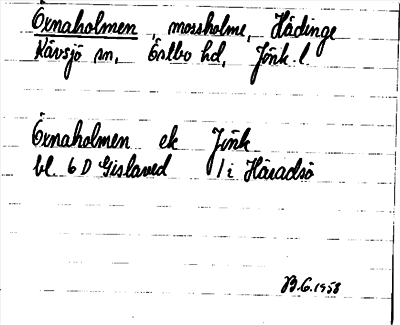 Öxnaholmen, mossholme, Hädinge
Kävsjö sn, Östbo hd, Jönk. l.
Öxnaholmen ek Jönk
bl. 6 D Gislaved 1 i Häradsö
B.G. 1958